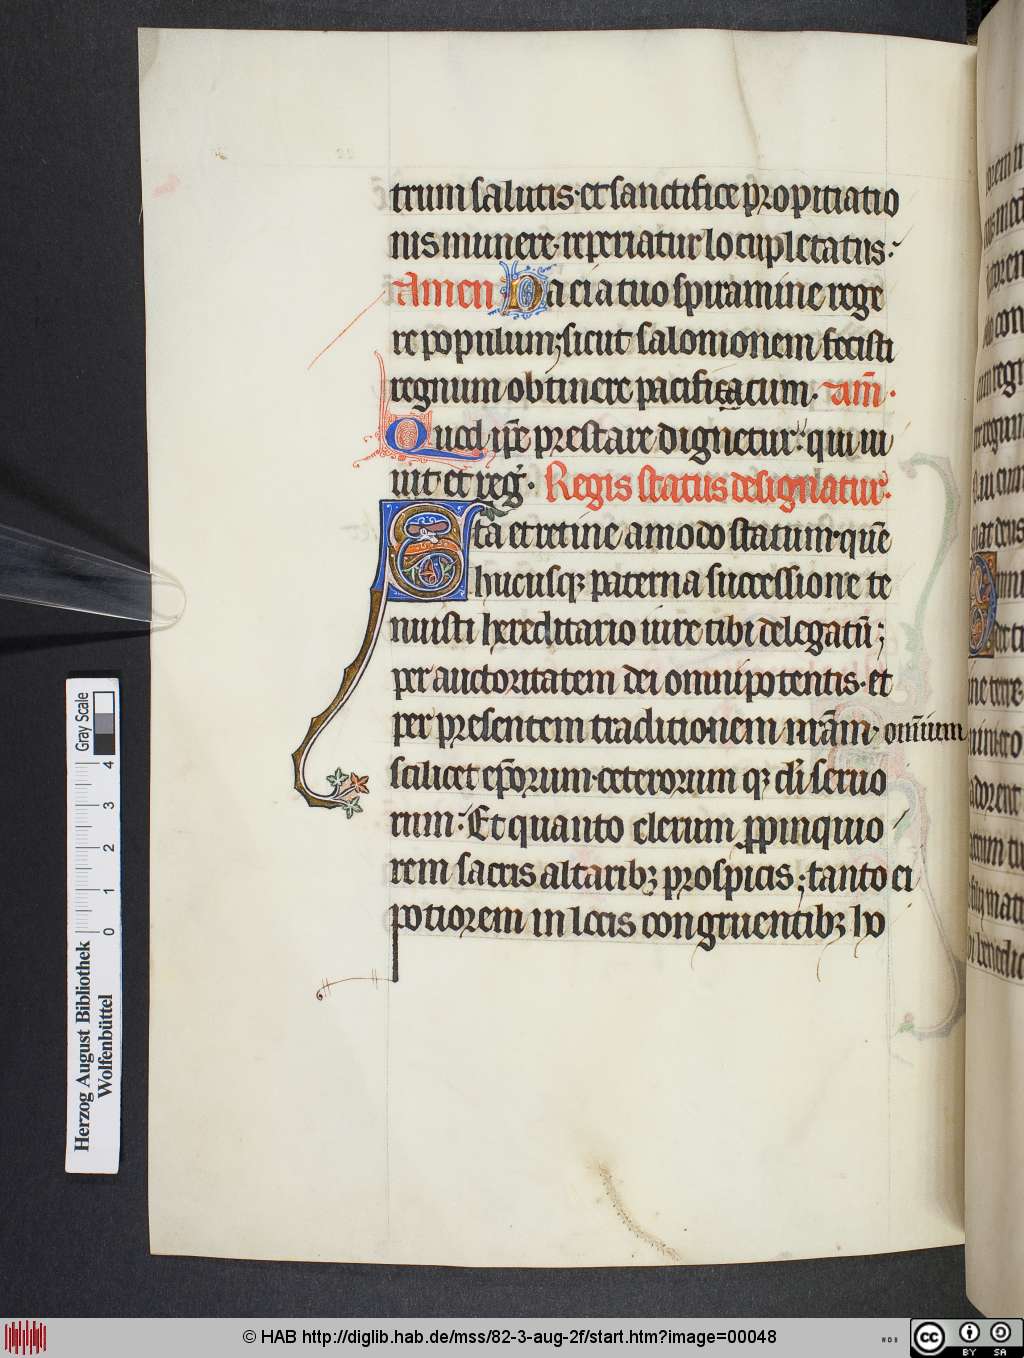 trum salutis· et sanctifice propitiatio
nis munere· reperiatur locupletatus:
Amen Da ei a tuo spiramine rege
re populum; sicut salomonem fecisti
regnum obtinere pacificacum. am̄.
Quod ip̄e prestare dignetur: qui ui
uit et reḡ. Regis status designatur.
Sta et retine amodo statum· quē
hucusqꝫ paterna successione te
nuisti hereditario iure tibi delegatū;
per auctoritatem dei omnipotentis· et
per presentem traditionem nr̄am· om̄ium
scilicet ep̄orum· ceterorum qꝫ di̅ seruo
rum: Et quanto clerum ꝓpinquio
rem sacris altaribꝫ prospicis; tanto ei
potiorem in locis congruentibꝫ ho
Herzog August Bibliothek
Wolfenbüttel
Gray Scale
0 1 2 3 4
© HAB http://diglib.hab.de/mss/82-3-aug-2f/start.htm?image=00048
cc BY SA